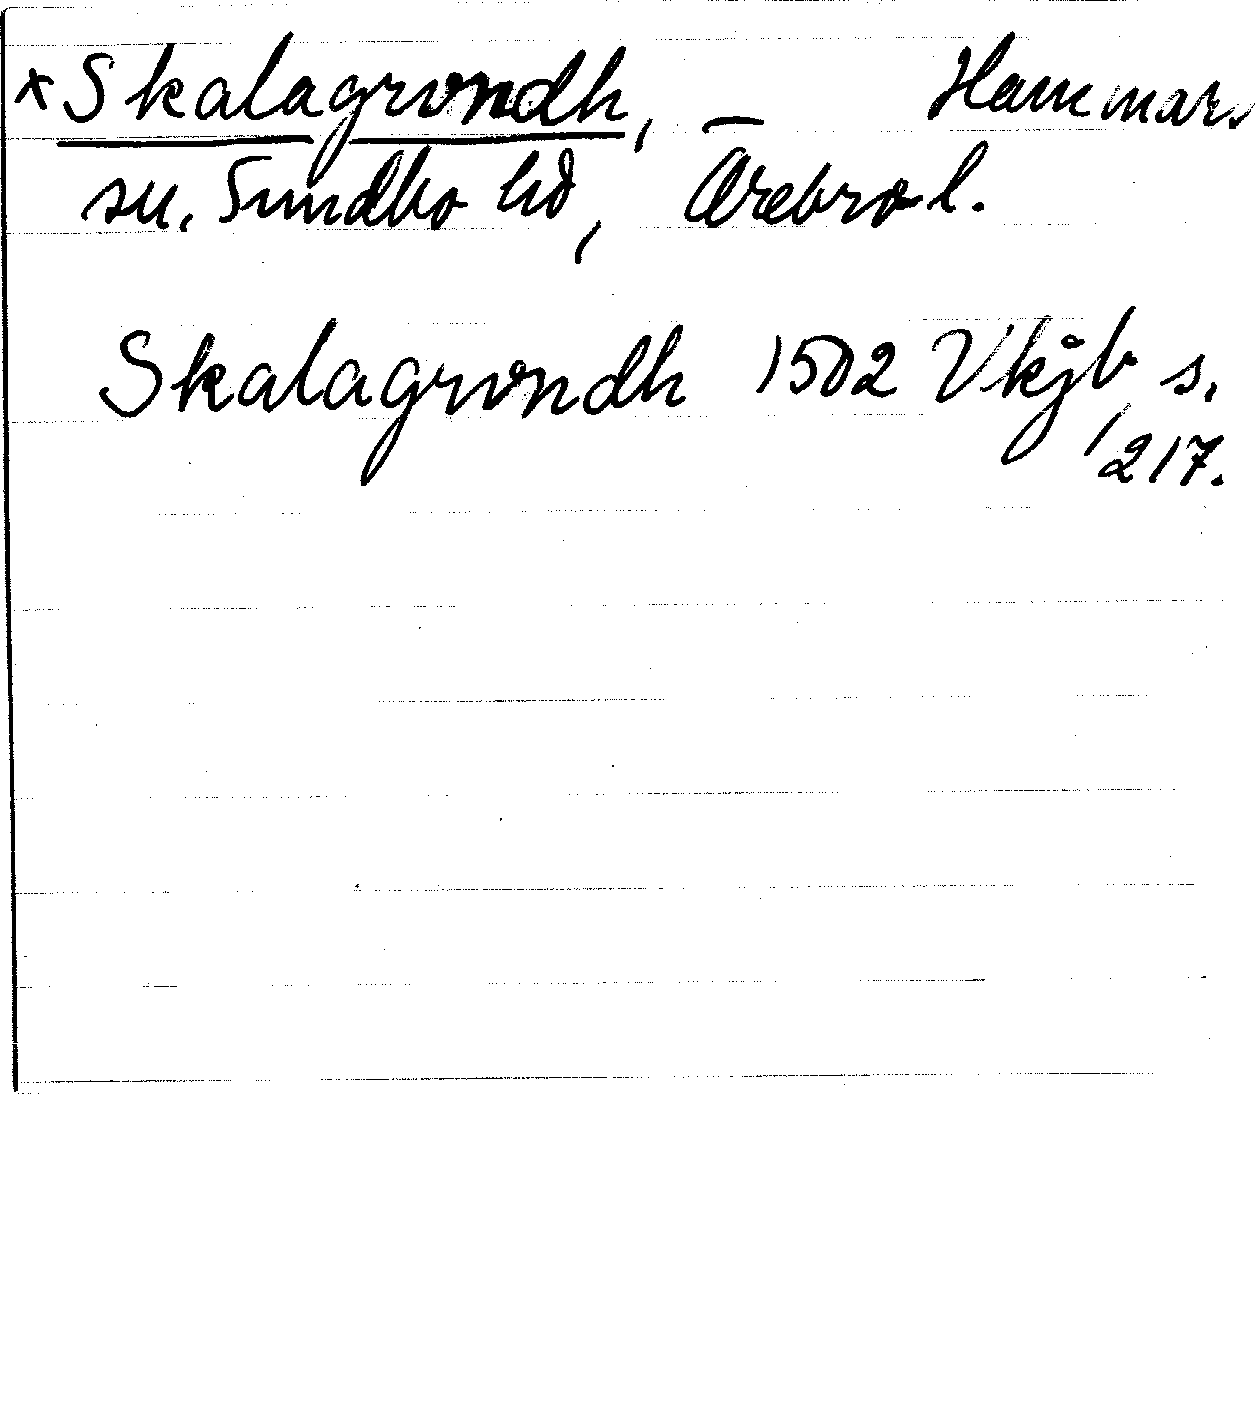 × Skalagrvndh, — Hammars
sn, Sundbo hd, Örebro l.
Skalagrvndh 1502 Vkjb, s.
217.